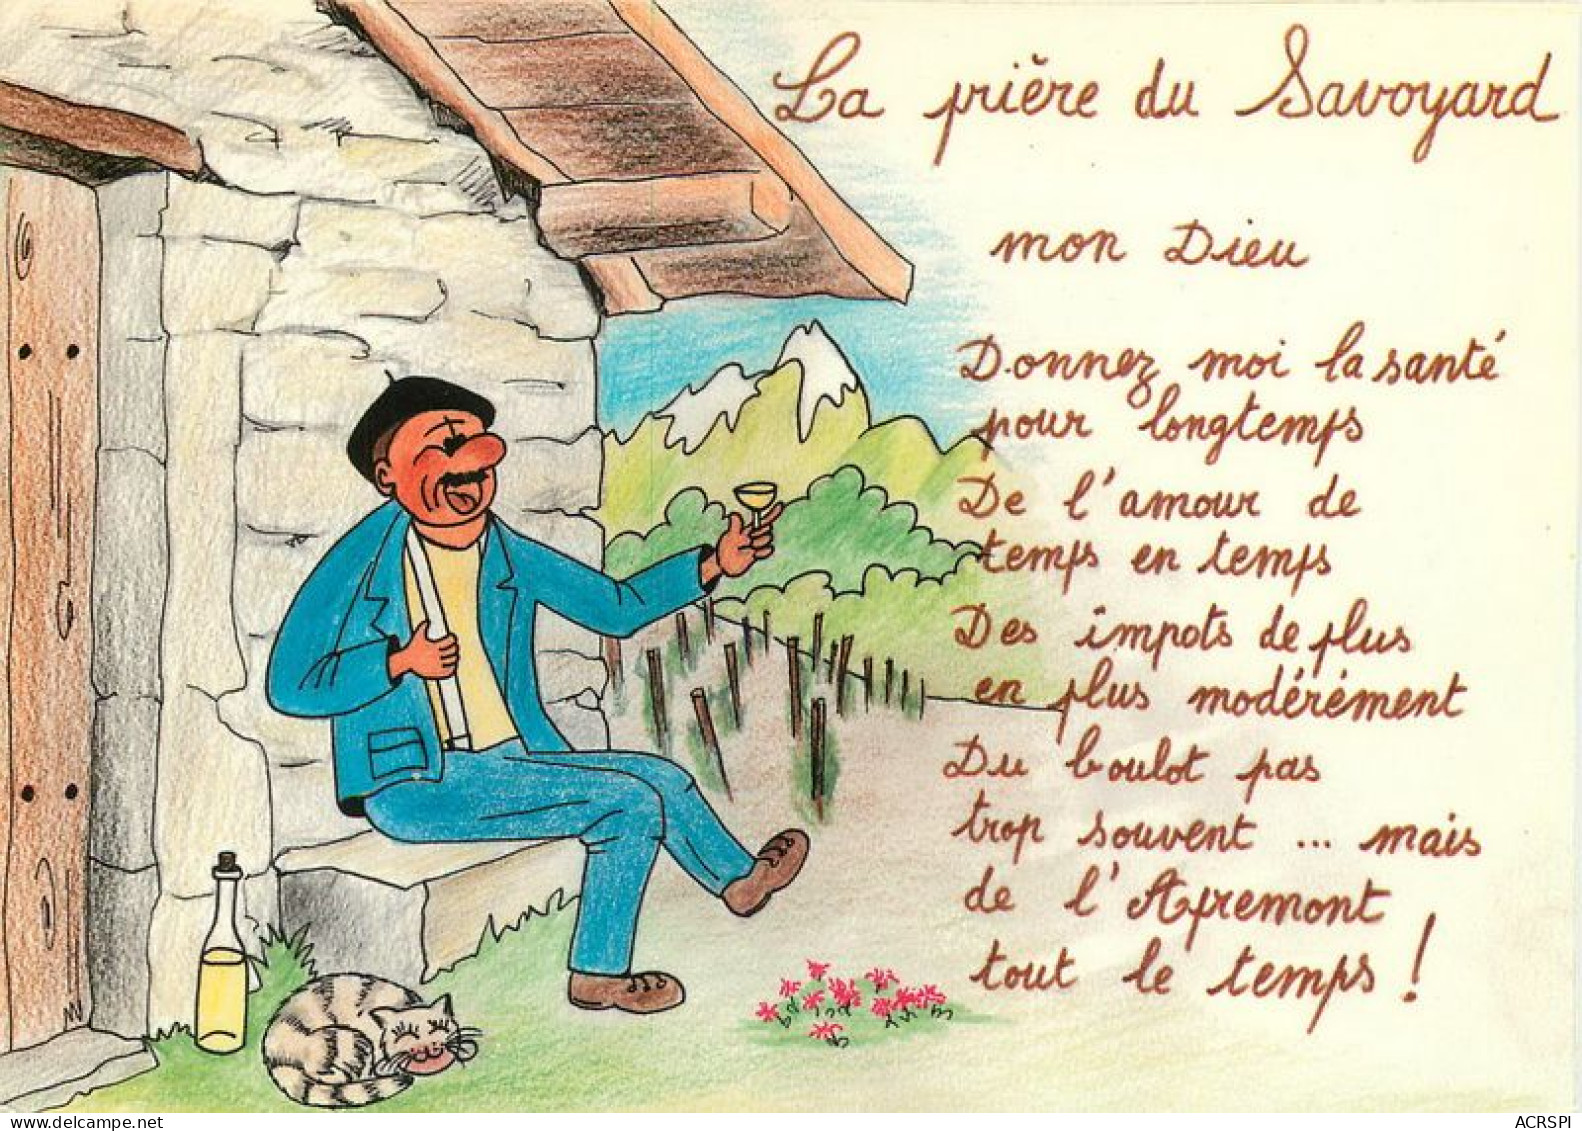 La prière du Savoyard
mon Dieu
Donnez moi la santé
pour longtemps
De l'amour de
temps en temps
Des impots de plus
en plus modérément
Du boulot pas
trop souvent ... mais
de l'Apremont
tout le temps !
www.delcampe.net
ACRSPI